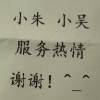 小朱 小吴
服务热情
谢谢! ^_^